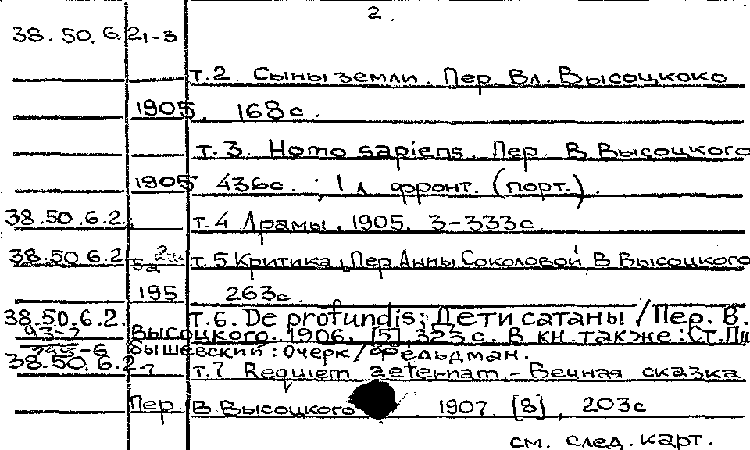 2.
38.50.6.2 1-3
т.2 Сыны земли. Пер. Вл. Высоцкоко
1905. 168с.
т.3. Homo sapiens. Пер. В Высоцкого
1905 436с. ; 1 л фронт. (порт.)
38.50.6.2. т.4 Драмы. 1905. 3-333с.
38.50.6.2 т.5 Критика. Пер. Анны Соколовой, В Высоцкого
195 263с
38.50.6.2. т.6. De profundis; Дети сатаны / Пер. В.
Высоцкого. 1906. [5], 323с. В кн. также: Ст. Пш
бышевский: очерк / Фельдман.
38.50.6.2.7 т.7 Requiem aeternam. - Вечная сказка
Пер. В Высоцкого 1907. [8], 203с
см. след. карт.